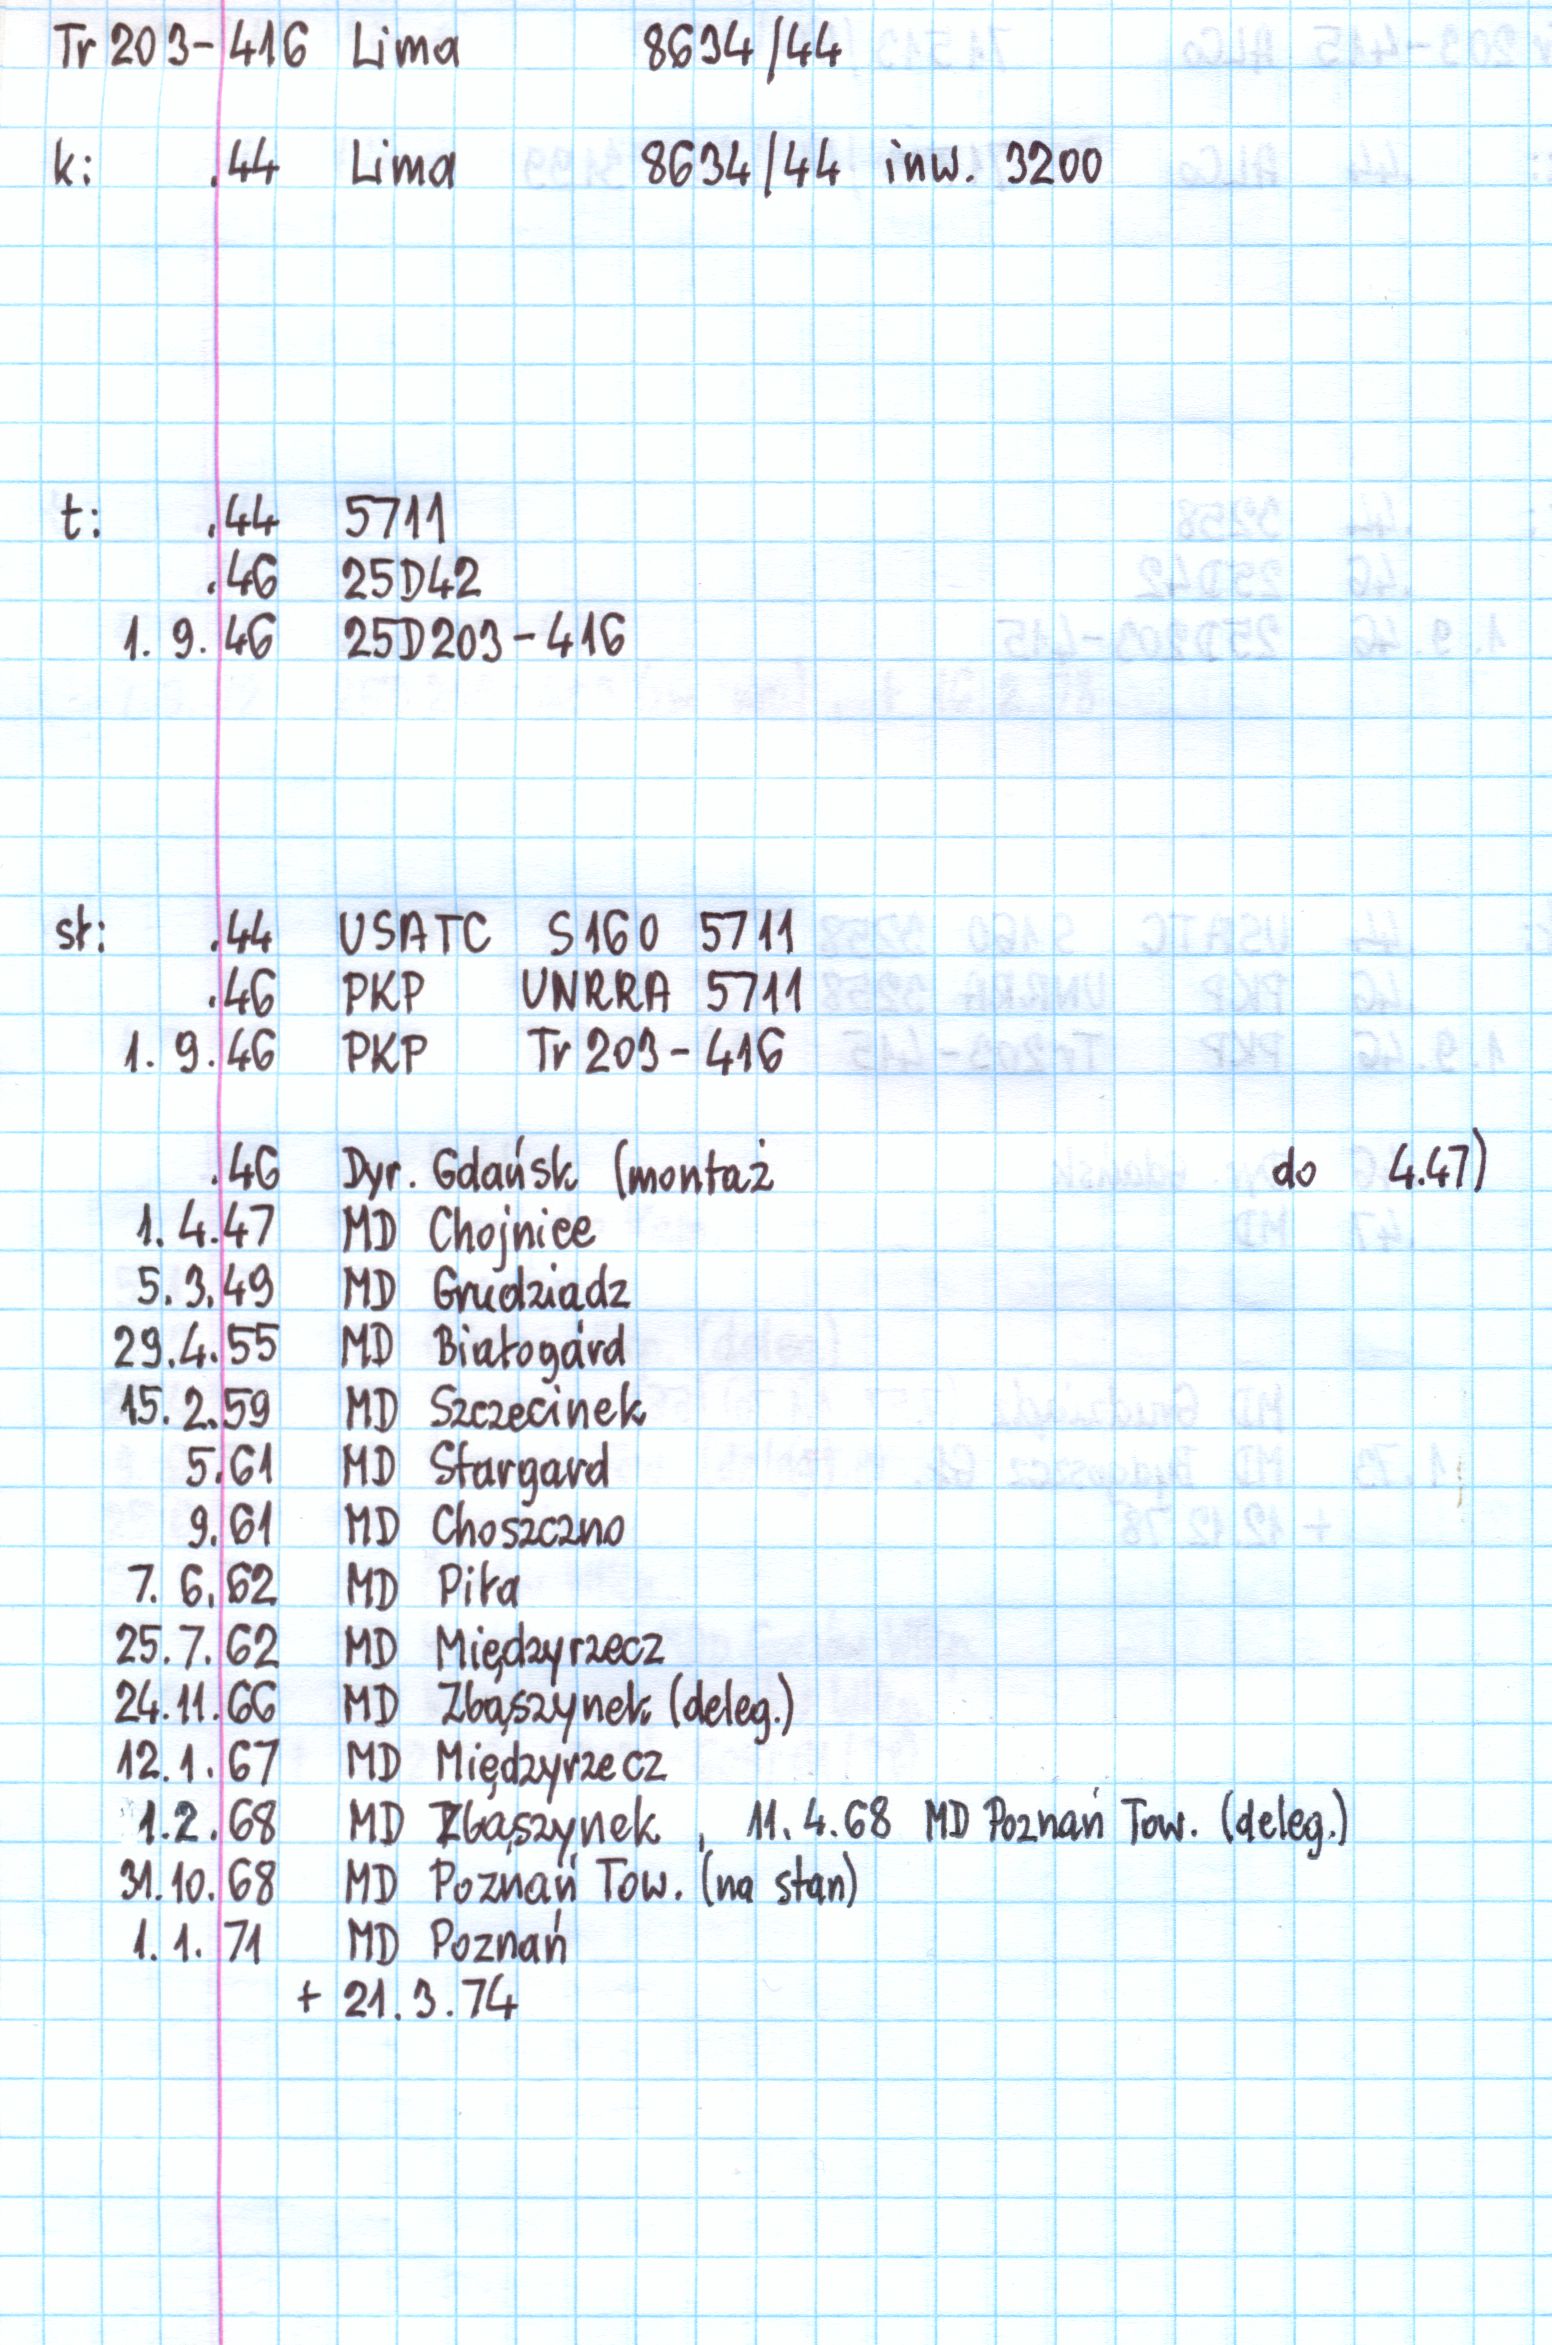 Tr 203-416 Lima 8634/44
k: .44 Lima 8634/44 inw. 3200
t: .44 5711
.46 25D42
1. 9. 46 25D203-416
st: .44 USATC S160 5711
.46 PKP UNRRA 5711
1. 9. 46 PKP Tr 203-416
.46 Dyr. Gdańsk (montaż do 4.47)
1. 4. 47 MD Chojnice
5. 3. 49 MD Grudziądz
29. 4. 55 MD Białogard
15. 2. 59 MD Szczecinek
5. 61 MD Stargard
9. 61 MD Choszczno
7. 6. 62 MD Piła
25. 7. 62 MD Międzyrzecz
24. 11. 66 MD Zbąszynek (deleg.)
12. 1. 67 MD Międzyrzecz
1. 2. 68 MD Zbąszynek, 11. 4. 68 MD Poznań Tow. (deleg.)
31. 10. 68 MD Poznań Tow. (na stan)
1. 1. 71 MD Poznań
+ 21. 3. 74